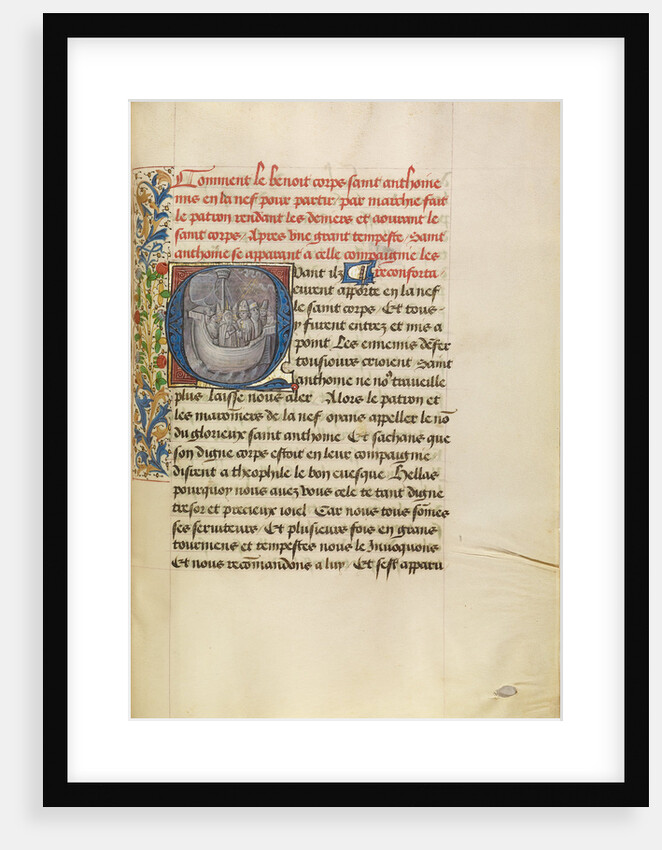 Comment le benoit corps saint anthoine
mis en la nef pour partir / par marchie fait
le patron rendant les deniers et aourant le
saint corps / Apres vne grant tempeste / Saint
anthoine se apparant a celle compaignie les
Quant ilz reconforta /
eurent apporte en la nef
le saint corps / Et tous
y furent entrez et mis a
point / Les ennemis defer
tousiours crioient / Saint
anthoine ne no9 traueille
plus / laisse nous aler / Alors le patron et
les maronniers de la nef oyans appeller le nō
du glorieux saint anthoine / Et sachans que
son digne corps estoit en leur compaignie
dirent a theophile le bon euesque / Hellas
pourquoy nous auez vous cele te tant digne
tresor et precieux ioiel / Car nous tous sōmes
ses seruiteurs / Et plusieurs fois en grans
tourmens et tempestes nous le Inuoquons
Et nous recōmandons a luy / Et sest apparu